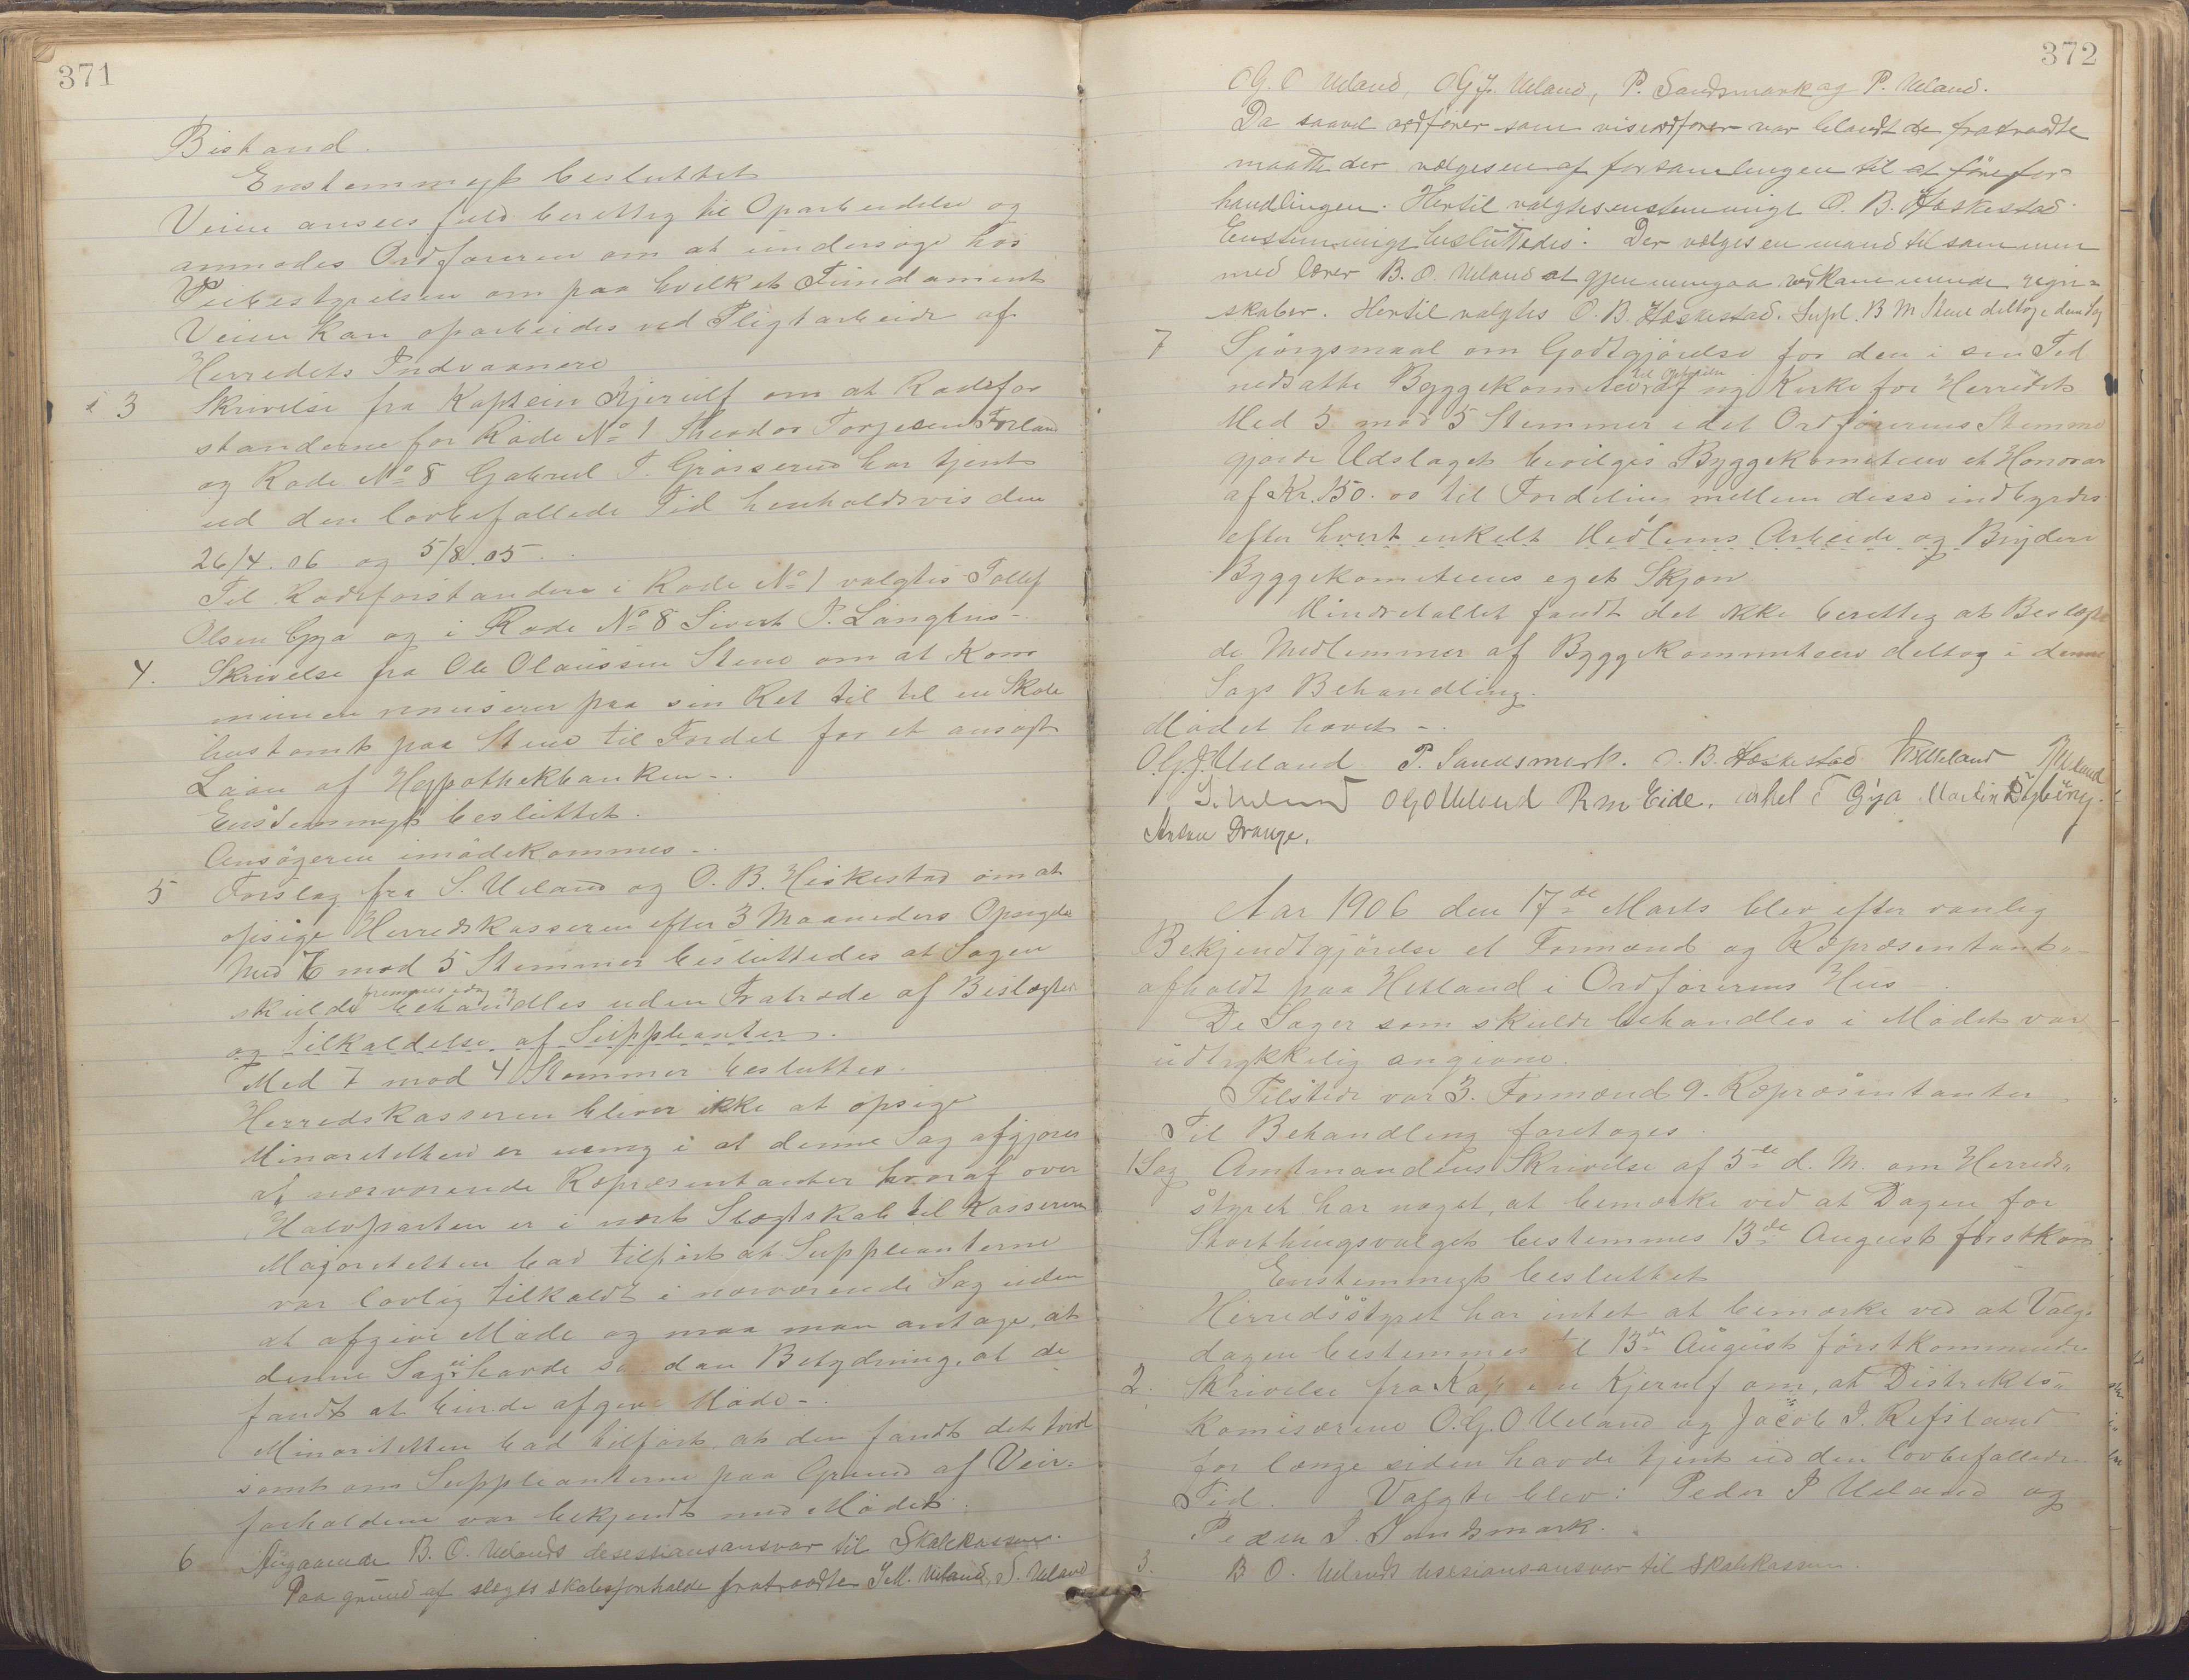 371
Bistand.
Enstemmigt besluttet
Veien ansees fuld berettig til Oparbeidelse og
anmodes Ordføreren om at undersøge hos
Veibestyrelsen om paa hvilket Fundament
Veien kan oparbeides ved Pligtarbeide af
Herredets Indvaanere
3 Skrivelse fra Kaptein Kjerulf om at Rodefor
standerne for Rode No 1 Theodor Torjesen Torland
og Rode No 8 Gabriel T. Grøsserud har tjent
ud den lovbefallede Tid henholdsvis den
26/4.06 og 5/8.05.
Til Rodeforstandere i Rode No 1 valgtes Tollef
Olsen Gya og i Rode No 8 Sivert P. Langhus-
4. Skrivelse fra Ole Olaussen Stene om at Kom
munen renuserer paa sin Ret til til en Skole
hustomt paa Stene til Fordel for et ansøgt
Laan af Hypothekbanken-.
Enstemmigt besluttet.
Ansøgeren imødekommes-.
5 Forslag fra S. Ueland og O. B. Heskestad om at
opsige Herredskasseren efter 3 Maaneders Opsigelse
Med 6 mod 5 Stemmer besluttedes at Sagen
fremmes idag og
skulde behandles uden Fratræde af Beslægtede
og tilkaldelse af Suppleanter.
Med 7 mod 4 Stemmer besluttes.
Herredskasseren bliver ikke at opsige
Minoriteten er uenig i at denne Sag afgjøres
af nærværende Repræsentanter hvoraf over
Halvparten er i nært Slægtskab til Kasseren
Majoriteten bad tilført at Suppleanterne
var lovlig tilkaldt i nærværende Sag uden
at afgive Møde og maa man antage, at
denne Sag ei havde sa dan Betydning, at de
fandt at burde afgive Møde-.
Minoriteten bad tilført at den fandt det tvivl
somt om Suppleanterne paa Grund af Veir=
forholdene var bekjendt med Mødet.
6 Angaaende B. O. Uelands desesiansansvar til Skolekassen.
Paa grund af slegtskabsforholde fratraadte J. M. Ueland, S. Ueland
372
O G. O Ueland, O G J. Ueland, P. Sandsmark og P. Ueland.
Da saavel ordfører som viseordfører var blandt de fratraadte
maatte der vælges en af forsamlingen til at føre for=
handlingen. Hertil valgtes enstemmigt O. B. Heskestad.
Enstemmigt besluttedes: Der vælges en mand til sammen
med lærer B. O. Ueland at gjennemgaa vedkommende regn=
skaber. Hertil valgtes O. B. Heskestad. Supl. B M Stene deltoge denne Sag
7 Spørgsmaal om Godtgjørelse for den i sin Tid
nedsatte Byggekomite ved af ny Kirke for Herredet
Med 5 mod 5 Stemmer idet Ordførerens Stemme
gjorde Udslaget bevilges Byggekomiteen et Honorar
af Kr. 150.00 til Fordeling mellem disse indbyrdes
efter hvert enkelt Medlems Arbeide og Bryderi
Byggekomiteens eget Skjøn
Mindretallet fandt det ikke berettig at Beslægte
de Medlemmer af Byggekommiteen deltog i denne
Sags Behandling.
Mødet hævet-.
O.G.J. Ueland P. Sandsmark. O. B. Heskestad Ueland P Ueland
S. Ueland O G O Ueland R M Eide. Mikel T Gya Martin Dybing.
Anton Drange.
Aar 1906 den 17de Marts blev efter vanlig
Bekjendtgjørelse et Formænd og Repræsentant=
afholdt paa Hetland i Ordførerens Hus.
De Sager som skulde behandles i Mødet var
udtrykkelig angivne.
Tilstede var 3. Formænd 9. Repræsentanter
Til Behandling foretoges.
1 Sag Amtmandens Skrivelse af 5te d. M. om Herreds=
styret har noget, at bemærke ved at Dagen for
Storthingsvalget bestemmes 13de August førstkom
Enstemmigt besluttet
Herredsstyret har intet at bemærke ved at Valg=
dagen bestemmes til 13de August førstkommende
2. Skrivelse fra Kaptein Kjerulf om, at Distrikts=
komisærene O. G. O Ueland og Jacob I. Refsland
for længe siden havde tjent ud den lovbefallede
Tid. Valgte blev: Peder P Ueland og
Peder P. Sandsmark.
3. B O. Uelands desesiansansvar til Skolekassen.